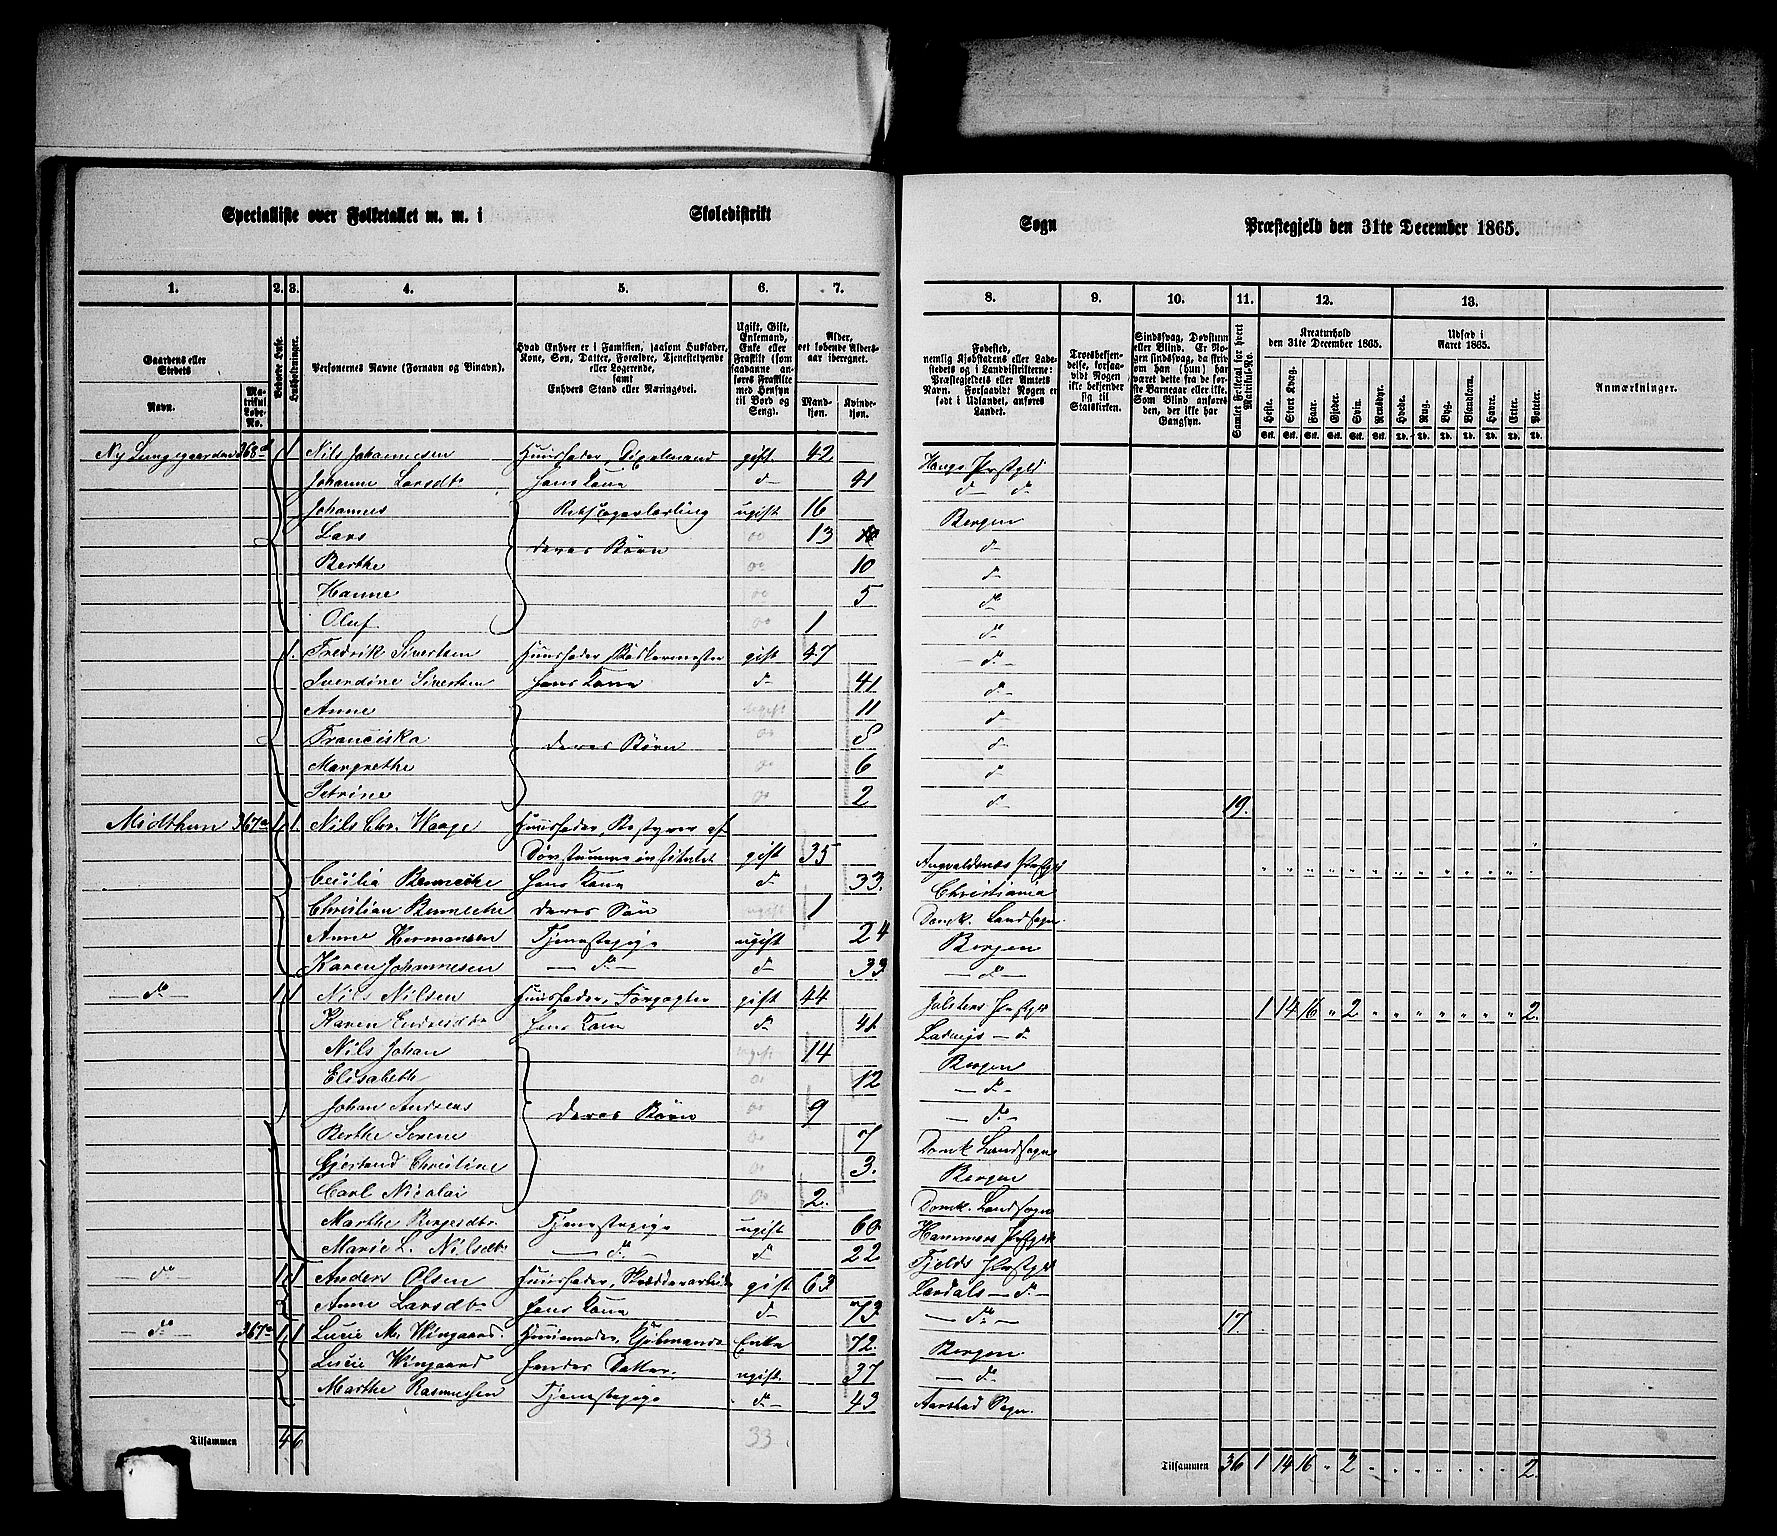 Specialliste over Folketallet m. m. i Skoledistrikt Sogn Præstegjeld den 31te December 1865.
1. 2. 3. 4. 5. 6. 7. 8. 9. 10. 11. 12. 13.
Gaardens eller Stedets
Navn.
Matrikul Løbe-No.
Beboede Huse.
Husholdninger.
Personernes Navne (Fornavn og Tilnavn).
Hvad Enhver er i Familien, saasom Husfader, Kone, Søn, Datter, Forældre, Tjenestetyende eller Logerende, samt Enhvers Stand eller Næringsvei.
Ugift, Gift, Enkemand, Enke eller Fraskilt (som saadanne anføres Fraskilte med Hensyn til Bord og Seng).
Alder, det løbende Aldersaar iberegnet.
Mandkjøn. Kvindekjøn.
Fødested, nemlig Kjøbstadens eller Ladestedets og i Landdistrikterne: Præstegjeldets eller Amtets Navn. Forsaavidt Nogen er født i Udlandet, anføres Landet.
Troesbekjendelse, forsaavidt Nogen ikke bekjender sig til Statskirken.
Sindssvag, Døvstum eller Blind. Er Nogen sindssvag, da skrives om han (hun) har været dette fra de første Barneaar eller ikke. Som Blind anføres den, der ikke har Gangsyn.
Samlet Folketal for hvert Matrikul-No.
Kreaturhold den 31te December 1865.
Heste. Stort Kvæg. Faar. Gjeder. Svin. Rensdyr.
Udsæd i Aaret 1865.
Hvede. Rug. Byg. Blandkorn. Havre. Erter. Poteter.
Anmærkninger.
Ny Lungegaarden 368d 1 Nils Johannesen Huusfader, gift 42 Haugs Præstgjld
Johanne Larsdtr hans Kone do 41 do do
Johannes ugift 16 Bergen
Lars deres Børn 13 do
Berthe 10 do
Hanne 5 do
Oluf 1 do
1. Fredrik Sivertsen Huusfader, gift 47 do
Sivertsen hans Kone do 41 do
Anne ugift 11 do
Franciska deres Børn 8 do
Margrethe 6 do
2 do 19.
Midthun 367a 1 1 Nils Chr. Waage Huusfader, Bestyrer af
Døvstumme institutet gift 35 Augvaldsnæs Præstgjld
Cecilia hans Kone do 33. Christiania
Christian deres Søn ugift 1 Domk. Landsogn
Anne Hermansen Tjenestepige ugift 24 Bergen
Karen Johannesen do do 33 do
do 1 1 Nils Nilsen Huusfader, gift 44 Jølsters Præstgjld 1 14 16 " 2 " " " " " " " 2.
Karen hans Kone do 41 Ladvigs do
Nils Johan ugift 14 Bergen
Elisabeth 12 do
Johan Andreas deres Børn 9 do
Berthe Serene 7 Domk Landsogn
Christine 3. Bergen
Carl Nicolai 2. Domk. Landsogn
Marthe Tjenestepige ugift 60 Hammers Præstgjld
Marie L. Nilsdtr do do 22 Fjelds Præstgjld
do 1 1 Anders Olsen Huusfader, gift 63 Lærdals do
Anne Larsdtr hans Kone do 73 do 17.
do 367a 1 1 Lucie M. Wingaard Huusmoder, Enke 72. Bergen
Lucie Wingaard hendes Datter ugift 37 do
Marthe Rasmussen Tjenestepige do 43 Aarstad Sogn
Tilsammen 4 6 33
Tilsammen 36 1 14 16 " 2 " " " " " " " 2.